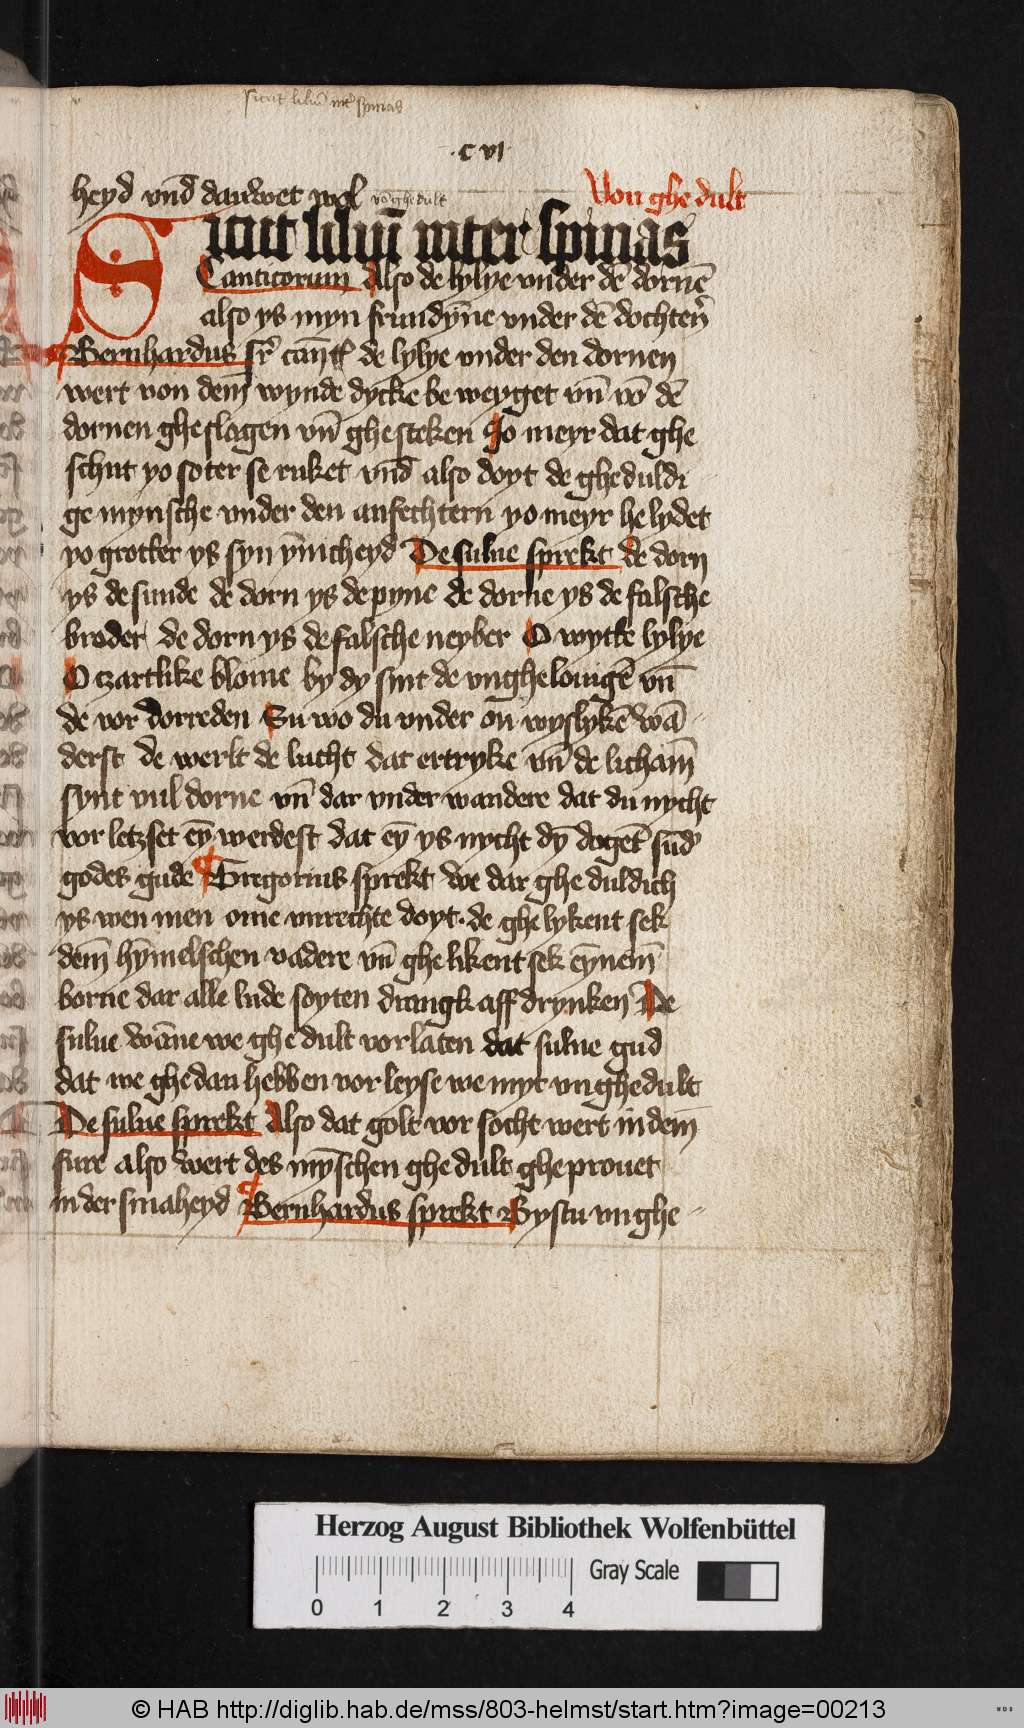 sicut liliū int᷑ spinas
·c vi·
heyd vnd̄ dauwet wol vō ghedult Von ghe dult
Sicut liliū inter spinas
Canticorum Also de lylye vnder dē dornē
also ys myn frundȳne vnder dē dochter̄
Bernhardus sr̄ cant̄ de lylye vnder den dornen
wert von dem wynde dycke be weyget vn̄ vō dē
dornen gheslagen vn̄ ghesteken Jo meyr dat ghe
schut yo soter se ruket vnd̄ also doyt de gheduldi
ge mynsche vnder den anfechtern yo meyr he lydet
yo grotter ys syn ȳnicheyd De sulue sprekt de dorn
ys de sunde de dorn ys de pyne de dorne ys de falsche
broder de dorn ys de falsche neyber O wytte lylye
O czartlike blome by dy sint de vnghelouigē vn̄
de vor dorreden Su wo du vnder on wyslykē wā
derst de werlt de lucht dat ertryke vn̄ de lichām
synt vul dorne vn̄ dar vnder wandere dat du nycht
vor letzset eȳ werdest dat eȳ ys nycht dȳ dogēt sūd᷑
godes gude Gregorius sprekt we dar ghe duldich
ys wen men ome vnrechte doyt. de ghe lykent sek
dem̄ hȳmelschen vadere vn̄ ghe likent sek eȳnem̄
borne dar alle lude soyten drungk aff drynken De
sulue wāne we ghe dult vorlaten dat sulue gud
dat we ghedan hebben vor leyse we myt vnghedult
De sulue sprekt Also dat golt vor socht wert in dem̄
fure also wert des mȳschen ghe dult gheprouet
in der smaheyd Bernhardus sprekt Bystu vnghe
Herzog August Bibliothek Wolfenbüttel
Gray Scale
0 1 2 3 4
© HAB http://diglib.hab.de/mss/803-helmst/start.htm?image=00213